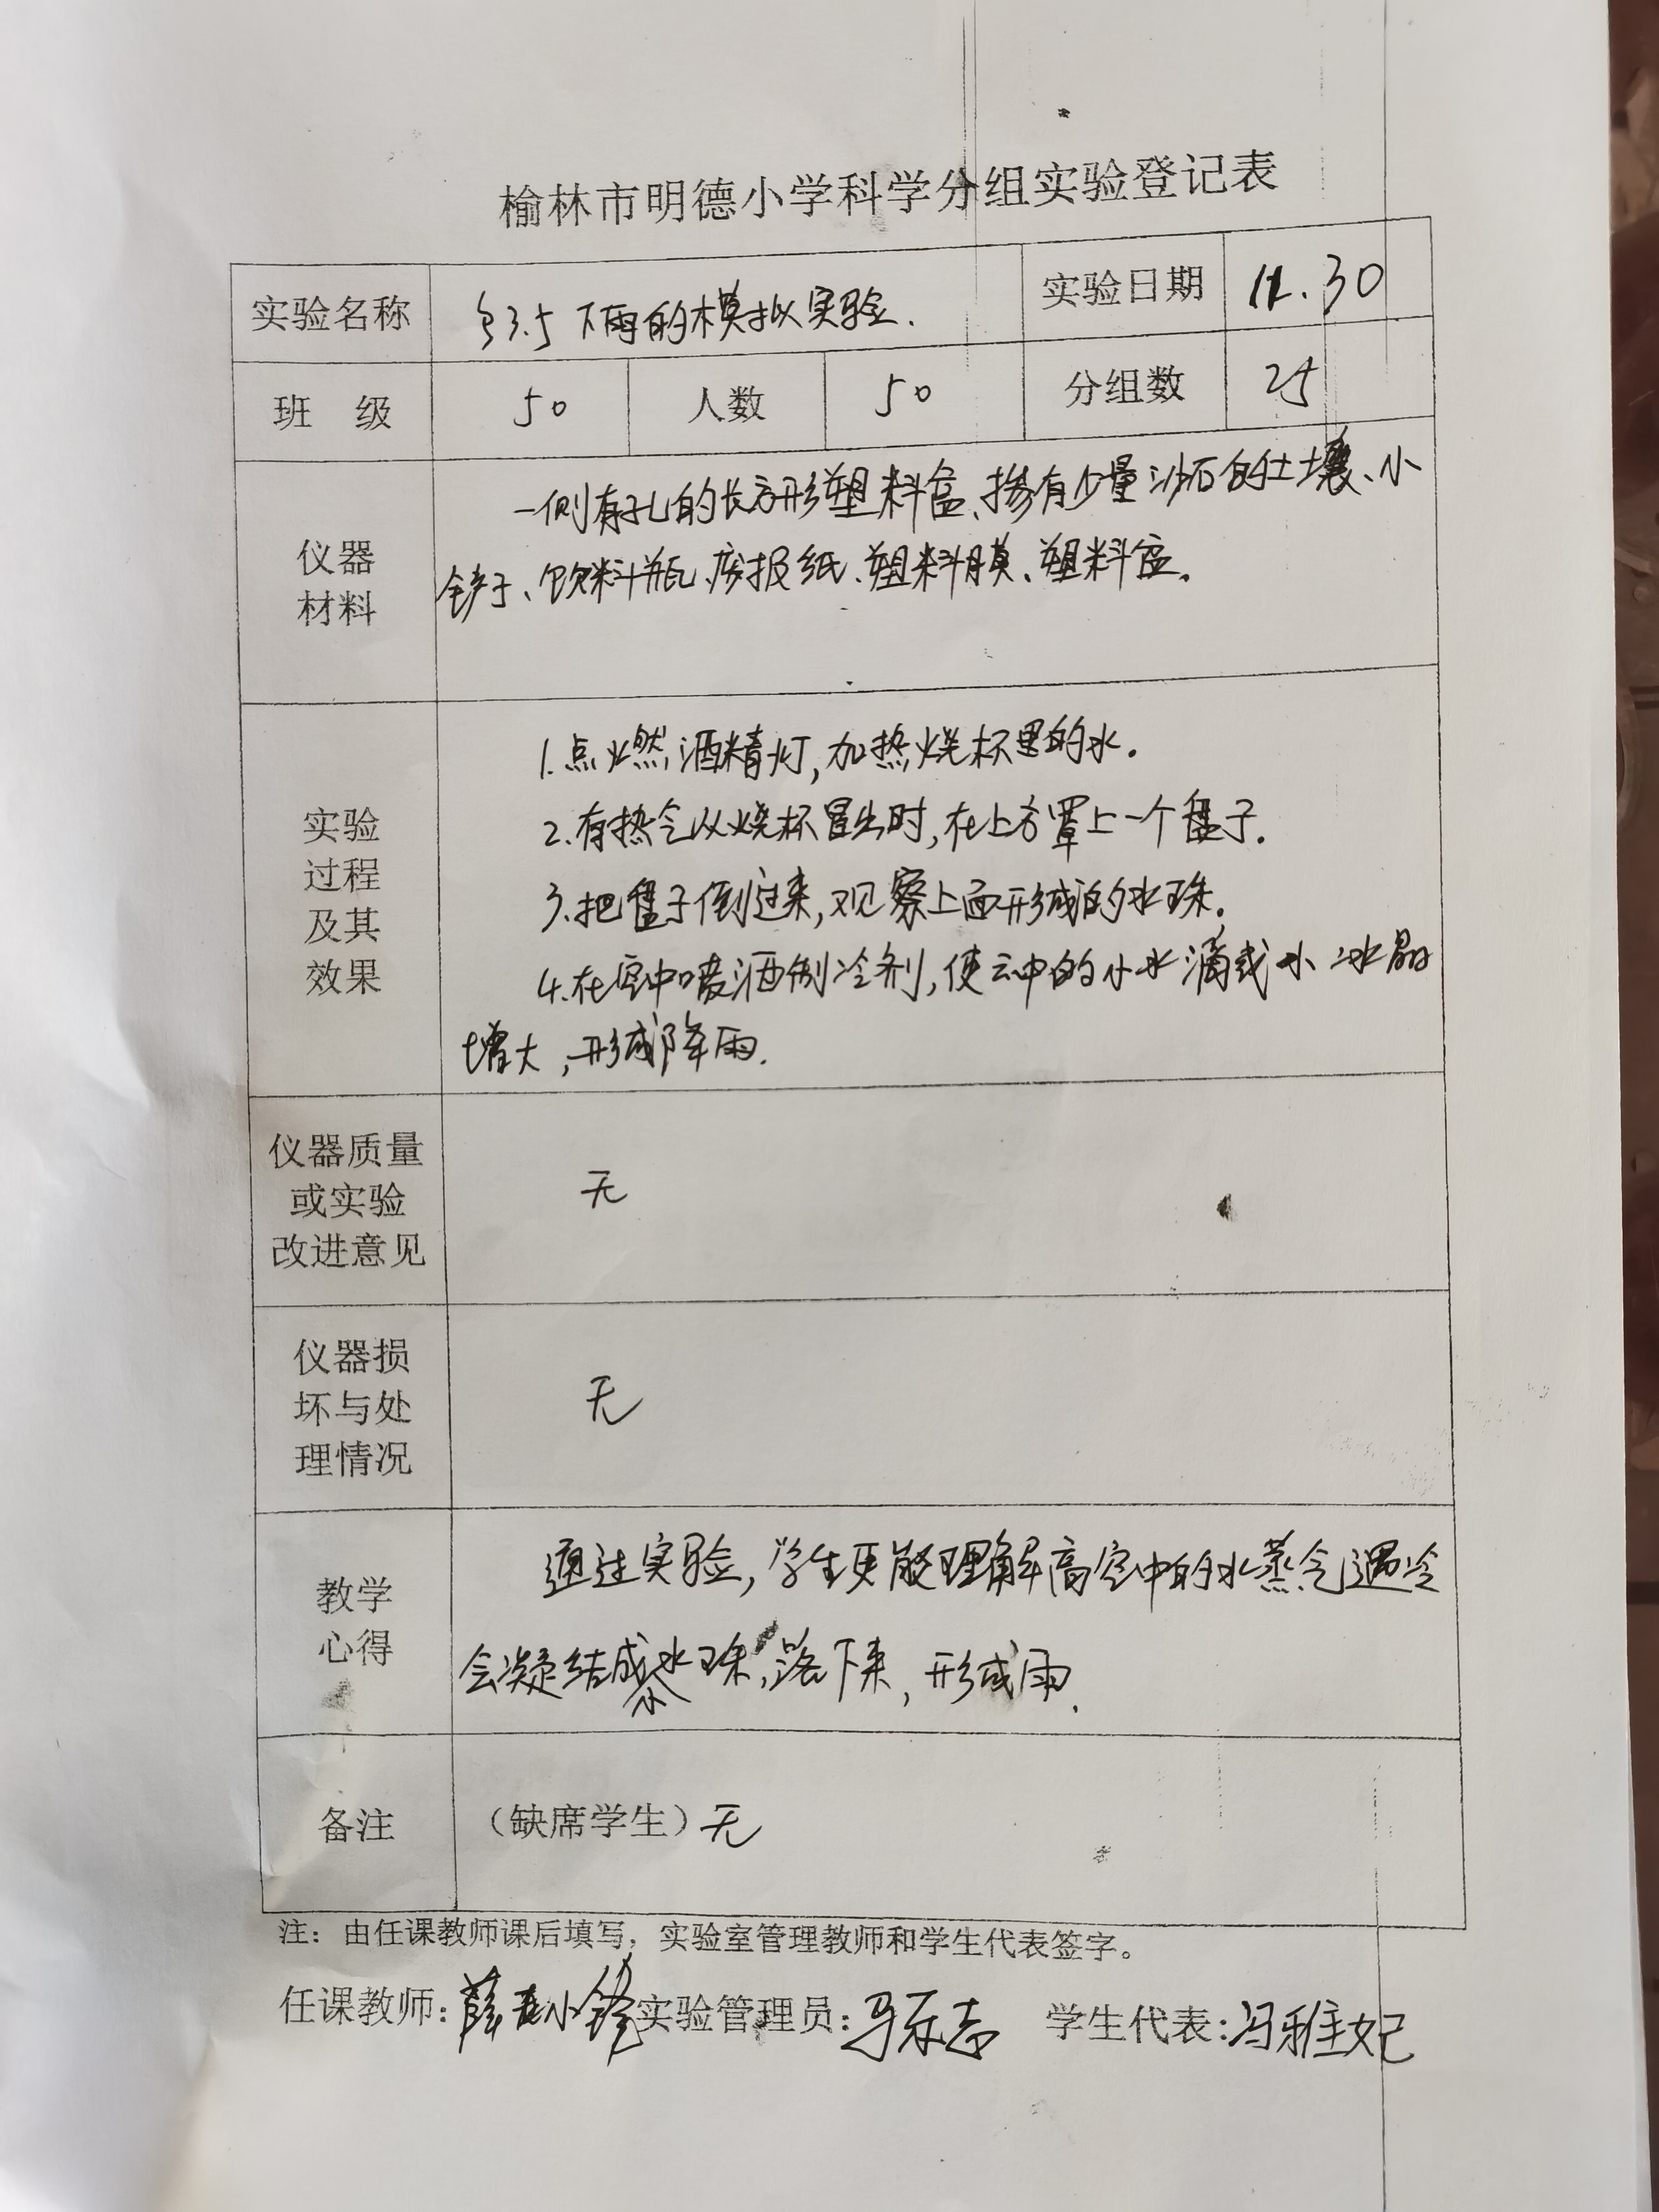 榆林市明德小学科学分组实验登记表
实验名称 §3.5 下雨的模拟实验. 实验日期 11.30
班 级 50 人数 50 分组数 25
仪器
材料
一侧有孔的长方形塑料盒、掺有少量沙石的土壤、小
铲子、饮料瓶、废报纸、塑料膜、塑料盒。
实验
过程
及其
效果
1.点燃酒精灯,加热烧杯里的水.
2.有热气从烧杯冒出时,在上方罩上一个盘子.
3.把盘子倒过来,观察上面形成的水珠.
4.在空中喷洒制冷剂,使云中的小水滴或小冰晶
增大,形成降雨.
仪器质量
或实验
改进意见
无
仪器损
坏与处
理情况
无
教学
心得
通过实验,学生更能理解高空中的水蒸气遇冷
会凝结成水珠,落下来,形成雨.
备注 （缺席学生）无
注：由任课教师课后填写，实验室管理教师和学生代表签字。
任课教师: 实验管理员: 学生代表:冯雅妃